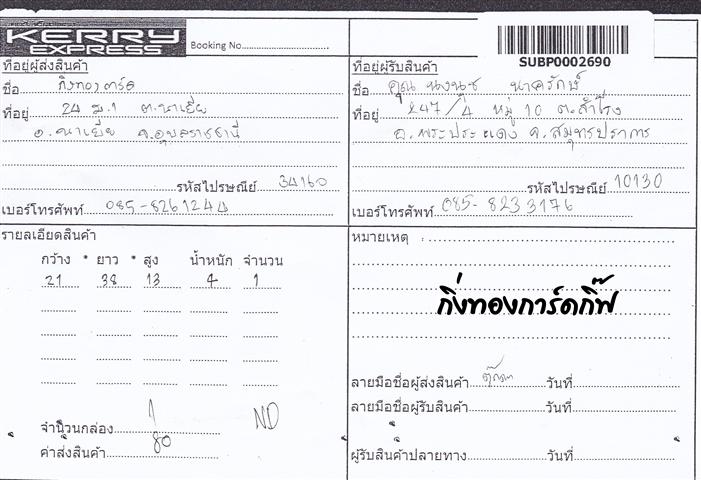 KERRY
EXPRESS
Booking No.
SUBP0002690
ที่อยู่ผู้ส่งสินค้า
ชื่อ กิ่งทองการ์ด
ที่อยู่ 24 ม.1 ต.นาเยีย
อ.นาเยีย จ.อุบลราชธานี
รหัสไปรษณีย์ 34160
เบอร์โทรศัพท์ 085-8261244
ที่อยู่ผู้รับสินค้า
ชื่อ คุณ นงนุช นาครักษ์
ที่อยู่ 247/4 หมู่ 10 ต.สำโรง
อ.พระประแดง จ.สมุทรปราการ
รหัสไปรษณีย์ 10130
เบอร์โทรศัพท์ 085-8233176
รายละเอียดสินค้า
กว้าง * ยาว * สูง น้ำหนัก จำนวน
21 38 13 4 1
จำนวนกล่อง 1
ND
ค่าส่งสินค้า 80
หมายเหตุ :
กิ่งทองการ์ดกิ๊ฟ
ลายมือชื่อผู้ส่งสินค้า วันที่
ลายมือชื่อผู้รับสินค้า วันที่
ผู้รับสินค้าปลายทาง วันที่